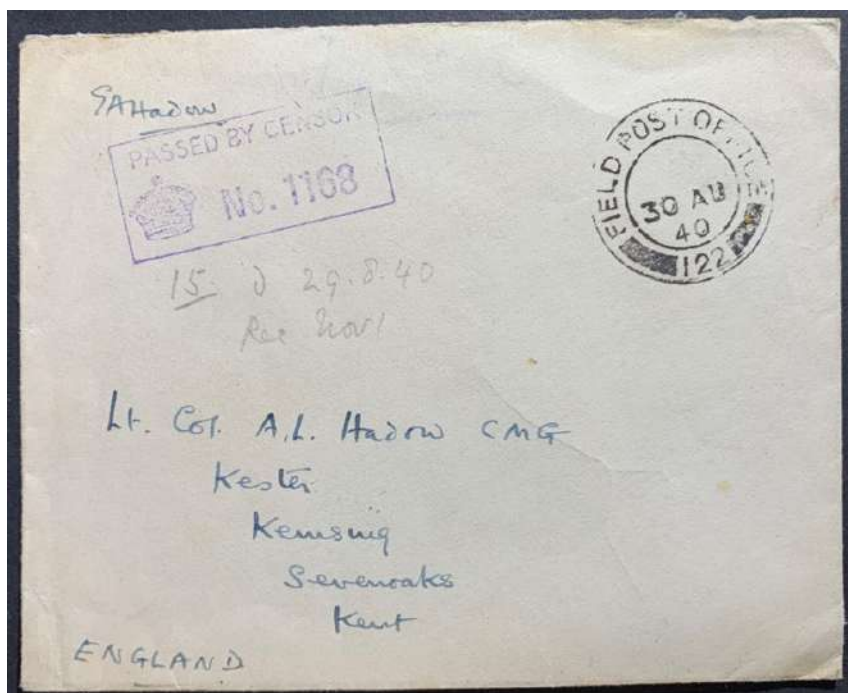 GAHadow
PASSED BY CENSOR
No. 1168
FIELD POST OFFICE
30 AU
40
122
15. 29.8.40
Rec Nov 1
Lt. Col. A.L. Hadow CMG
Kester
Kemsing
Sevenoaks
Kent
ENGLAND